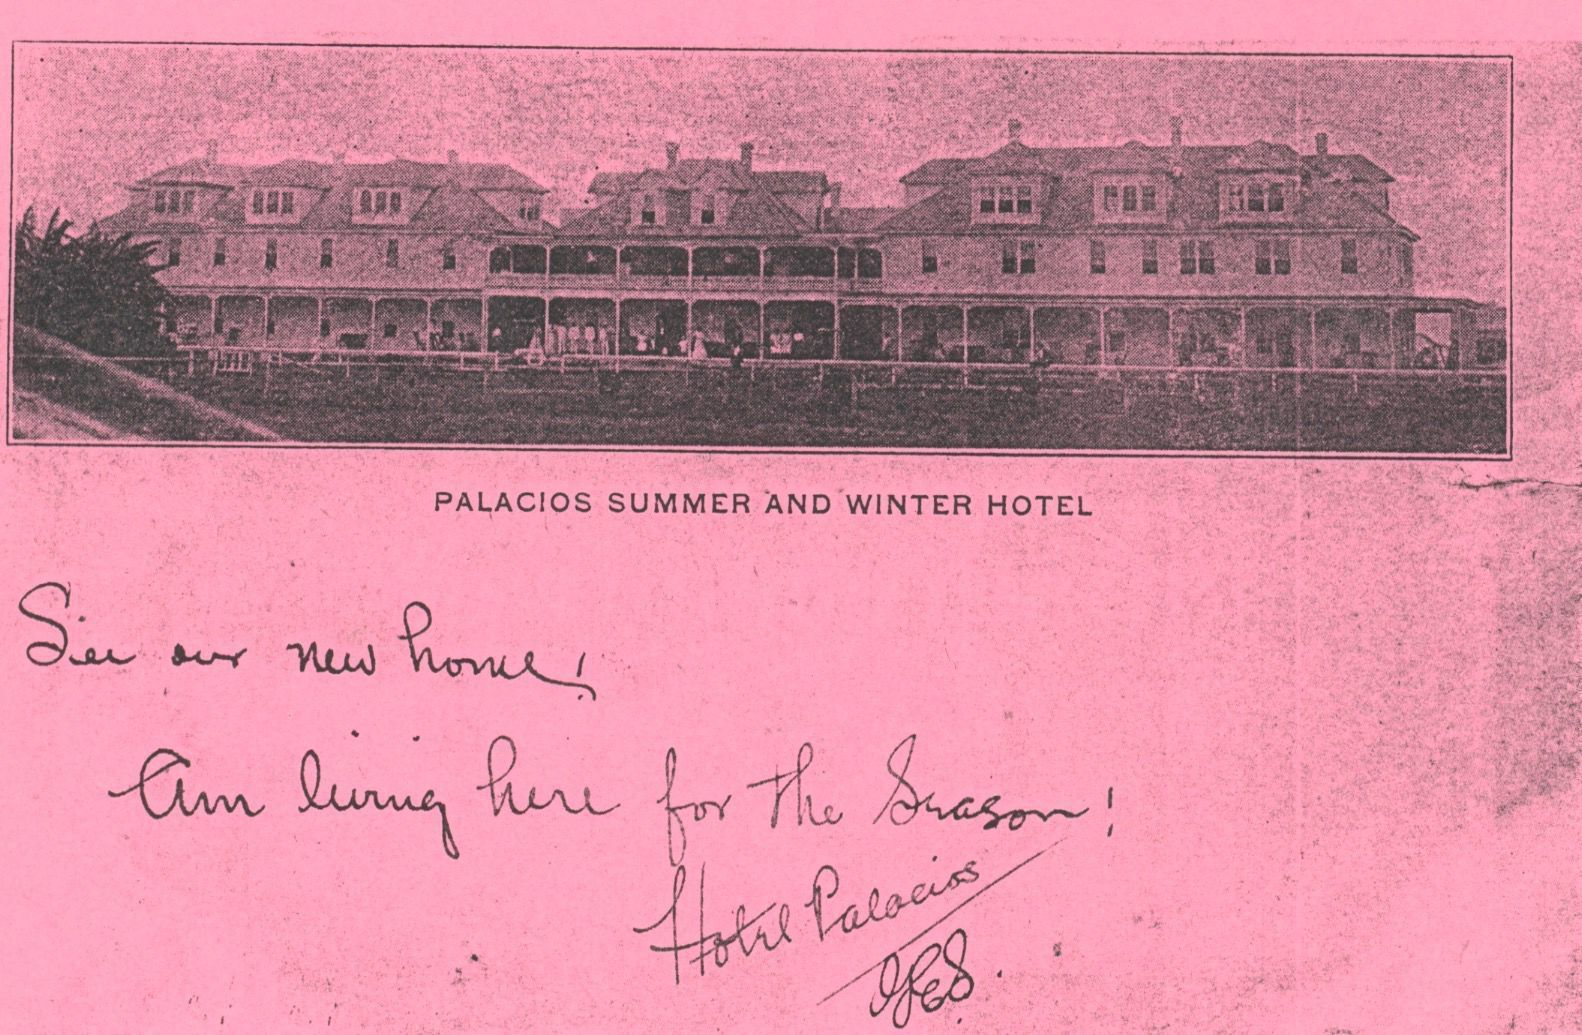 PALACIOS SUMMER AND WINTER HOTEL
See our new home!
Am living here for the Season!
Hotel Palacios